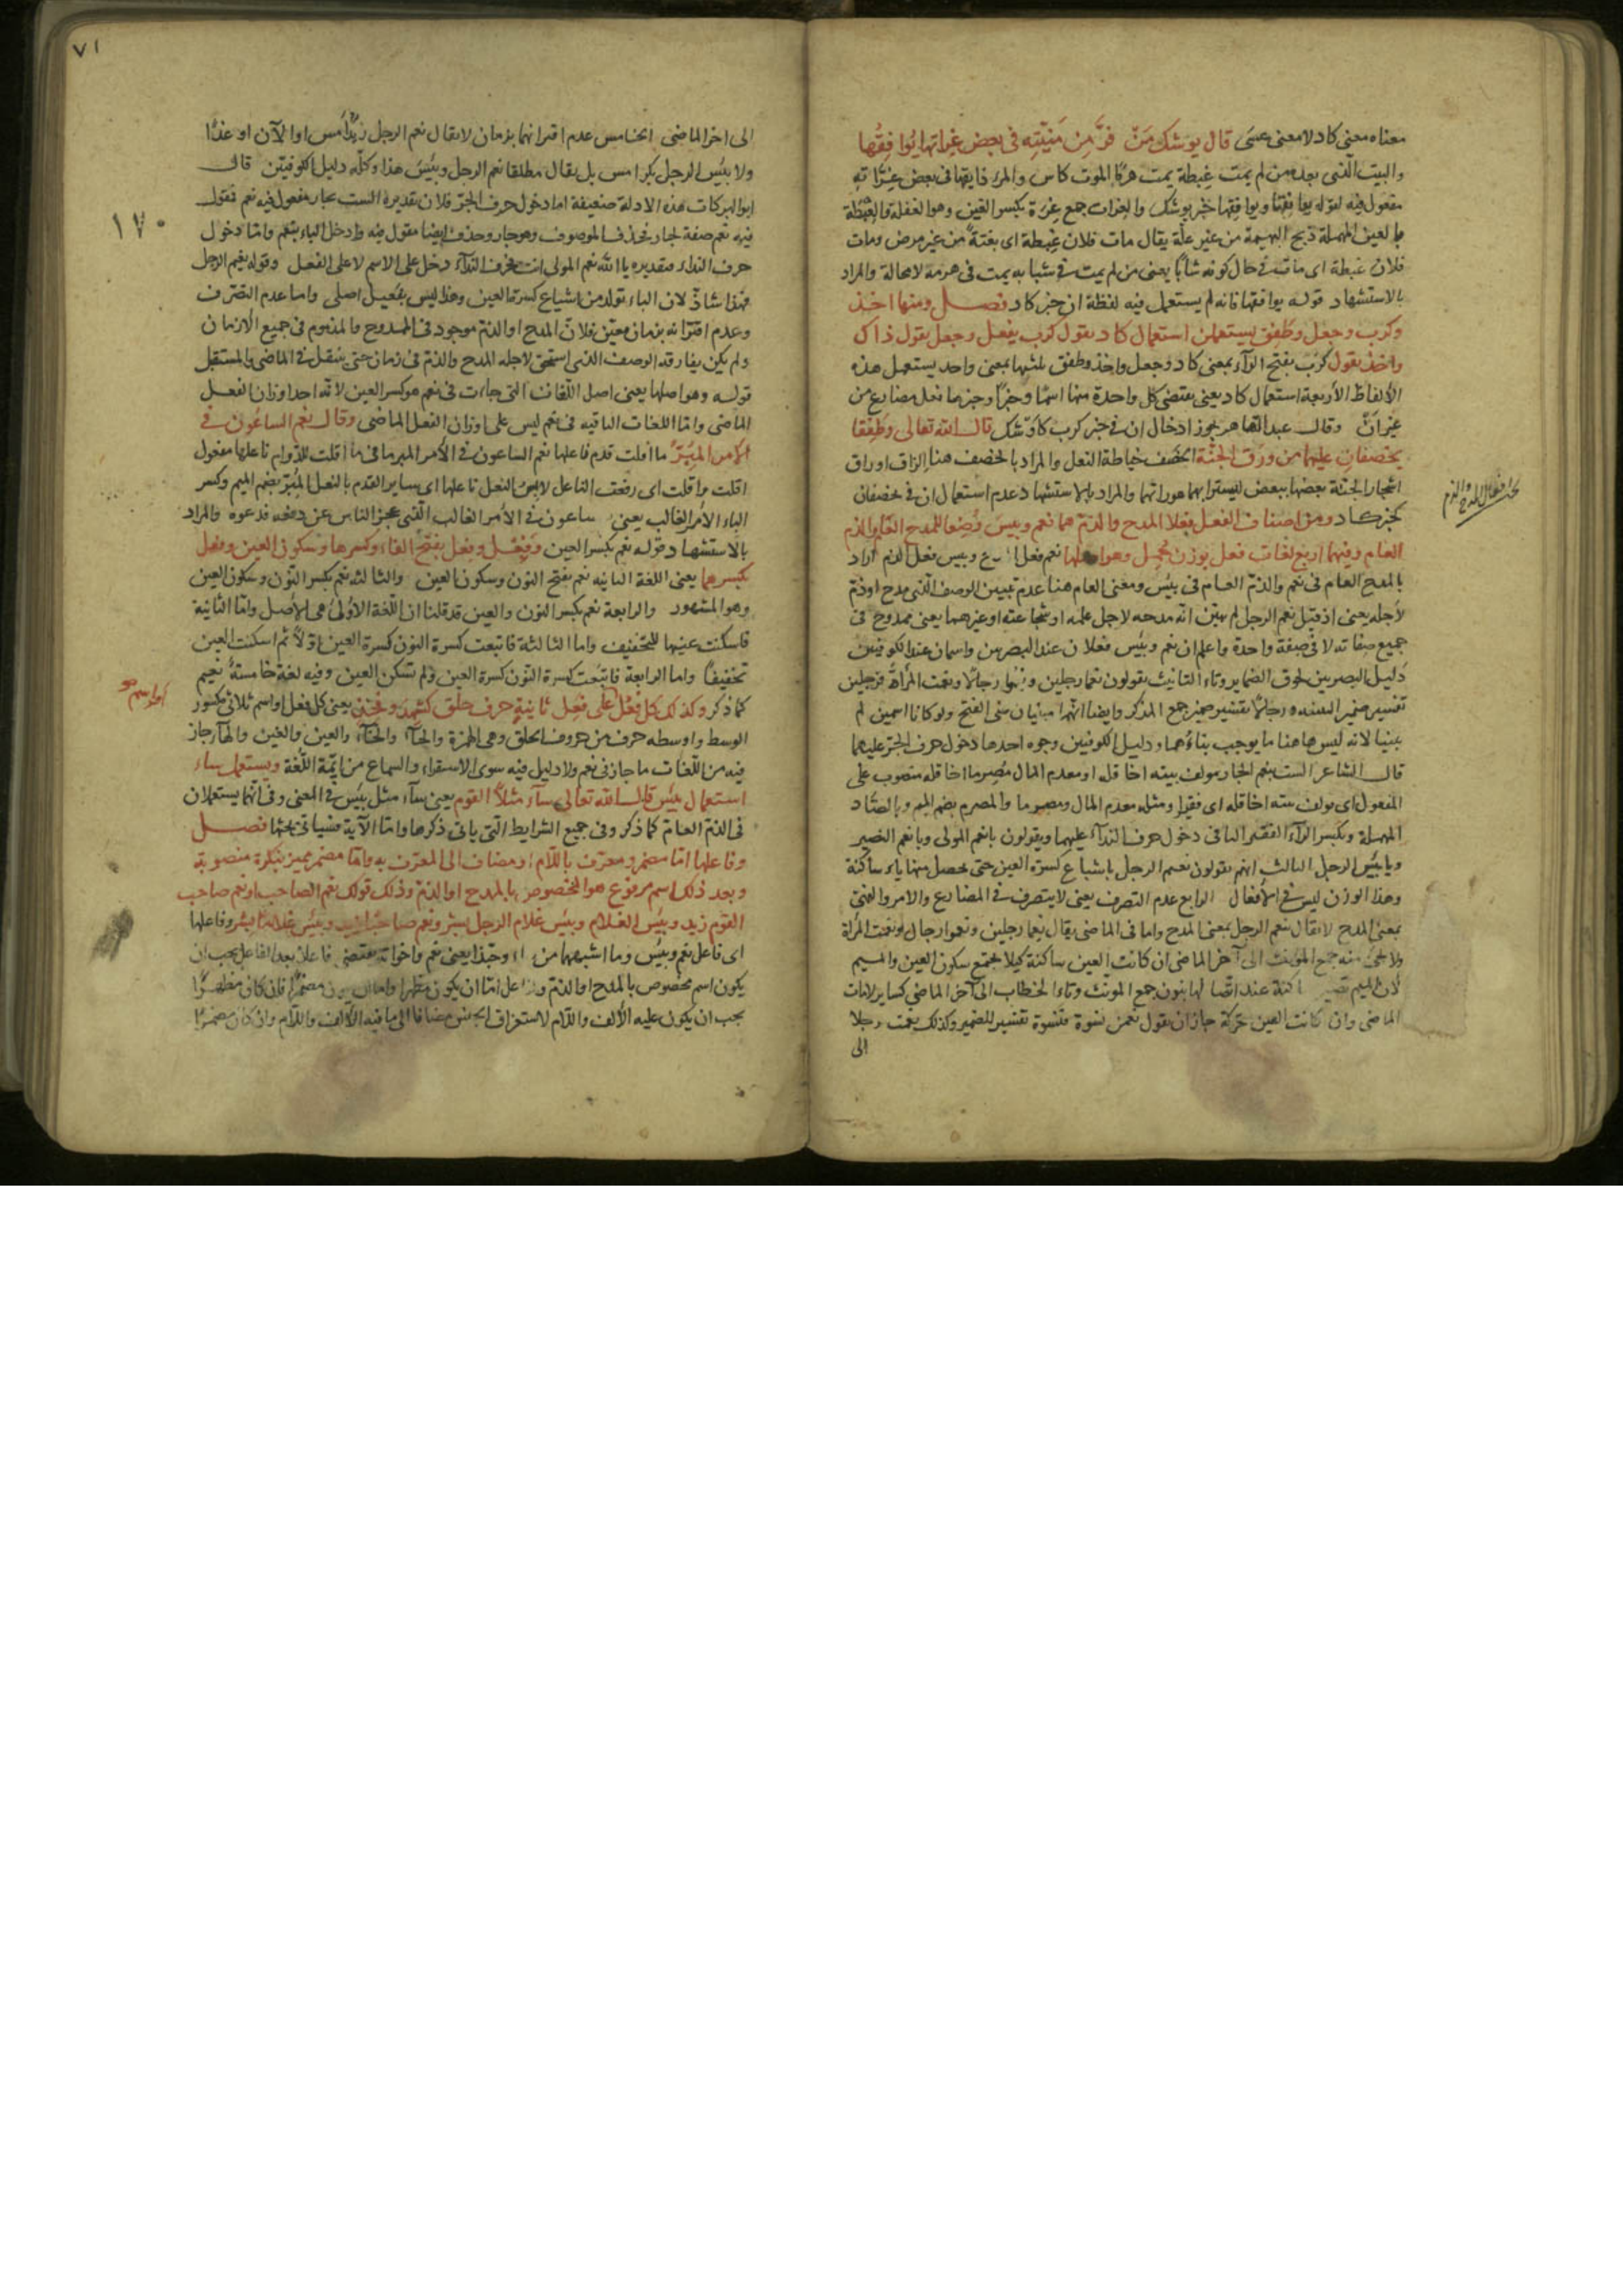 معناه معنى كاد لا معنى عسى قال يوشك من فرّ من منيّته في بعض غراتها يوافقها
والبيت الذي بعده من لم يمت غبطة يمت هرمًا الموت كاس والمرء ذايقها في بعض غراته
مفعول فيه لقوله يوافقها ويوافقها خبر يوشك والغرات جمع غرة بكسر الغين وهو الغفلة والغبطة
بالعين المهملة ذبح البهيمة من غير علّة يقال مات فلان غبطة اى بغتة من غير مرض ومات
فلان غبطة اى مات في حال كونه شابًا يعنى من لم يمت في شبابه يمت في هرمه لا محالة والمراد
بالاستشهاد قوله يوافقها فانه لم يستعمل فيه لفظة ان خبر كاد فصل ومنها اخذ
وكرب وجعل وطفق يستعملن استعمال كاد يقول كرب يفعل وجعل يقول ذاك
واخذ يقول كرب بفتح الراء بمعنى كاد وجعل واخذ وطفق ثلثها بمعنى واحد يستعمل هذه
الألفاظ الأربعة استعمال كاد يعنى يقتضى كل واحدة منها اسمًا وخبرًا وخبرها فعل مضارع من
غير ان وقال عبد القاهر يجوز ادخال ان في خبر كرب كاوشك قال الله تعالى وطفقا
يخصفان عليهما من ورق الجنّة الخصف خياطة النعل والمراد بالخصف هنا الزاق اوراق
اشجار الجنّة بعضها ببعض ليسترا بهما عوراتهما والمراد بالاستشهاد عدم استعمال ان في يخصفان
كخبر كاد ومن اصناف الفعل فعلا المدح والذمّ هما نعم وبيس وضعا للمدح العام والذم
العام وفيهما اربع لغات فعل بوزن وهو اصلها نعم فعل وبيس فعل الذم اراد
بالمدح العام في نعم والذمّ العام في بئس ومعنى العام هنا عدم تبيين الوصف الذي مدح او ذمّ
لأجله يعنى اذ قيل نعم الرجل لم يبيّن انّه مدحه لاجل علمه او شجاعته او غيرهما يعنى ممدوح في
جميع صفاته لا في صفة واحدة واعلم ان نعم وبئس فعلان عند البصريين واسمان عند الكوفيين
دليل البصريين لحوق الضماير وتاء التانيث يقولون نعما رجلين ونعموا رجالًا ونعمت المرأة فرجلين
تفسير ضمير التثنية ورجالا تفسير ضمير جمع المذكر وايضا انهما مبنيان على الفتح ولو كانا اسمين لم
يبنيا لانه ليس هاهنا ما يوجب بناءهما ودليل الكوفيين وجوه احدها دخول حرف الجرّ عليهما
قال الشاعر الست بنعم الجار يولف بيته اخا قله او معدم المال مصرما اخا قله منصوب على
المفعول اى يولف بيته اخا قله اى فقيرا ومثله معدم المال ومصرما والمصرم بضم الميم وبالصّاد
المهملة وبكسر الراء الفقير الثانى دخول حرف النداء عليهما ويقولون يا نعم المولى ويا نعم النصير
ويا بئس الرجل الثالث انهم يقولون نعيم الرجل باشباع كسرة العين حتى يحصل منها ياء ساكنة
وهذا الوزن ليس في الأفعال الرابع عدم التصرف يعنى لا يتصرف في المضارع والامر والنهى
بمعنى المدح لا يقال ينعم الرجل بمعنى المدح واما في الماضى يقال نعما رجلين ونعموا رجال ونعمت المرأة
ولا يجئ منه جمع المؤنث الى آخر الماضى ان كانت العين ساكنة كيلا يجتمع سكون العين والميم
لأن الميم تصير ساكنة عند اتصالها بنون جمع المونث وتاء الخطاب الى آخر الماضى كساير لامات
الماضى وان كانت العين متحركة جاز ان يقول نعمن نسوة فنسوة تفسير للضمير وكذلك نعمت رجلا
الى
بحث افعال المدح والذم
٧١
الى اخر الماضى الخامس عدم اقترانهما بزمان لا يقال نعم الرجل زيد امس او الآن او غدًا
ولا بئس الرجل بكر امس بل يقال مطلقا نعم الرجل وبئس هذا وكلّه دليل الكوفيّين قال
ابو البركات هذه الادلة ضعيفة اما دخول حرف الجرّ فلان تقديره الست بجار مفعول فيه نعم فقول
فيه نعم صفة لجار فحذف الموصوف وهو جار وحذف ايضا مقول فيه وادخل الباء بنعم وامّا دخول
حرف النداء فتقديره يا الله نعم المولى انت فحرف النداء دخل على الاسم لا على الفعل وقوله نعيم الرجل
فهذا شاذّ لان الياء تولد من اشباع كسرة العين وهذا ليس بفعيل اصلى واما عدم التصرف
وعدم اقترانه بزمان معيّن فلانّ المدح او الذمّ موجود في الممدوح والمذموم في جميع الأزمان
ولم يكن يفارقه الوصف الذى استحق لاجله المدح والذمّ في زمان حتى ينقل في الماضى والمستقبل
قوله وهو اصلها يعنى اصل اللّغات التى جاءت في نعم هو كسر العين لانّه احد اوزان الفعل
الماضى وامّا اللغات الباقيه في نعم ليس على اوزان الفعل الماضى وقال نعم الساعون في
الأمر المبرّ ما اقلت قدم فاعلها نعم الساعون في الأمر المبر ما في ما اقلت للدوام فاعلها مفعول
اقلت اى رفعت الناعل لابس النعل ناعلها اى ساير القدم بالنعل المبرّ بضم الميم وكسر
الباء الأمر الغالب يعنى ساعون في الأمر الغالب الّذى عجز الناس عن دفعه فدعوه والمراد
بالاستشهاد قوله نعم بكسر العين وفعل وفعل بفتح الفاء وكسرها وسكون العين وفعل
بكسرهما يعنى اللغة الثانيه نعم بفتح النون وسكون العين والثالثه نعم بكسر النّون وسكون العين
وهو المشهور والرابعة نعم بكسر النون والعين قد قلنا ان اللّغة الاولى هى الأصل وامّا الثانية
فاسكنت عينها للتخفيف واما الثالثة فاتبعت كسرة النون كسرة العين اوّلًا ثم اسكنت العين
تخفيفًا واما الرابعة فاتبعت كسرة النّون كسرة العين ولم تسكن العين وفيه لغة خامسة نعيم
كما ذكر وكذلك كلّ فعل على فعل ثانية حرف حلق كشهد وفخذ يعنى كل فعل او اسم ثلاثى مكسور
الوسط واوسطه حرف من حروف الحلق وهى الهمزة والهاء والحاء والعين والغين والخاء جاز
فيه من اللّغات ما جاز في نعم ولا دليل فيه سوى الاستقراء والسماع من ايمّة اللّغة ويستعمل ساء
استعمال بئس قال الله تعالى ساء مثلًا القوم يعنى ساء مثل بئس في المعنى وفى انهما يستعملان
في الذمّ العامّ كما ذكر وفى جميع الشرايط التى ياتى ذكرها وامّا الآية فسيأتى بحثها فصل
وفاعلها امّا مضمر معرّف باللّام او مضاف الى المعرّف به وامّا مضمر مميز بنكرة منصوبة
وبعد ذلك اسم مرفوع هو المخصوص بالمدح او الذمّ وذلك قولك نعم الصاحب او نعم صاحب
القوم زيد وبئس الغلام وبئس غلام الرجل بشر ونعم صاحبًا زيد وبئس غلامًا بشر وفاعلها
اى فاعل نعم وبئس وما اشبههما من ساء وحبّذا يعنى نعم واخواته يقتضى فاعلا وبعد الفاعل يجب ان
يكون اسم مخصوص بالمدح او الذمّ وفاعل امّا ان يكون مظهرا واما ان يكون مضمرًا فان كان مظهرًا
يجب ان يكون عليه الألف واللّام لاستغراق الجنس مضافا الى ما فيه الألف واللّام وان كان مضمرًا
١٧٠